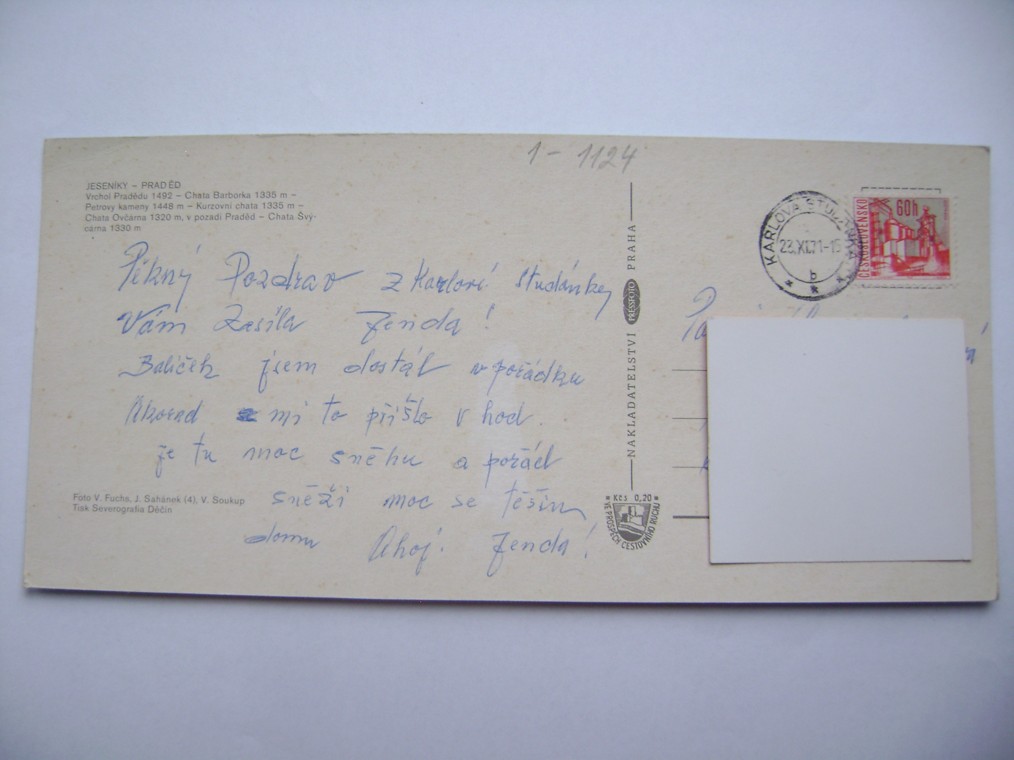 1 - 1124
JESENÍKY – PRADĚD
Vrchol Pradědu 1492 – Chata Barborka 1335 m –
Petrovy kameny 1448 m – Kurzovní chata 1335 m –
Chata Ovčárna 1320 m, v pozadí Praděd – Chata Švý-
cárna 1330 m
Pěkný Pozdrav z Karlové studánky
Vám Zasílá Jenda!
Balíček jsem dostál v pořádku
mi to přišlo v hod
že tu moc sněhu a pořád
sněží moc se těším
domu Ahoj. Jenda!
Foto V. Fuchs, J. Sahánek (4), V. Soukup
Tisk Severografia Děčín
NAKLADATELSTVÍ PRESSFOTO PRAHA
Kčs 0,20
VE PROSPĚCH CESTOVNÍHO RUCHU
KARLOVA STUDÁNKA
23.XI.71-15
b
60h
ČESKOSLOVENSKO